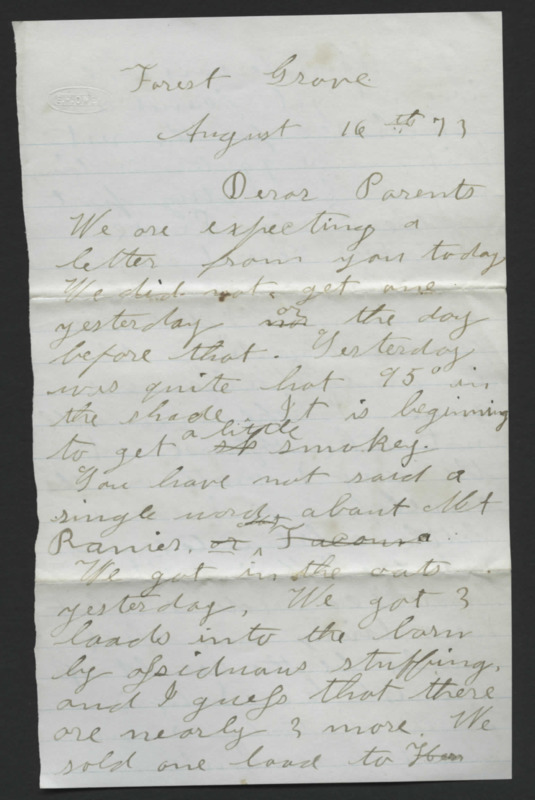 Forest Grove
August 16th 73
Derar Parents
We are expecting a
letter from you today
We did not get one
yesterday nor or the day
before that. Yesterday
was quite hot 95° in
the shade It is beginning
to get a little smokey.
You have not said a
single word about Mt
Ranier, or Tacoma
We got in the oats
yesterday, We got 3
loads into the barn
by assiduous stuffing,
and I guess that there
are nearly 3 more. We
sold one load to